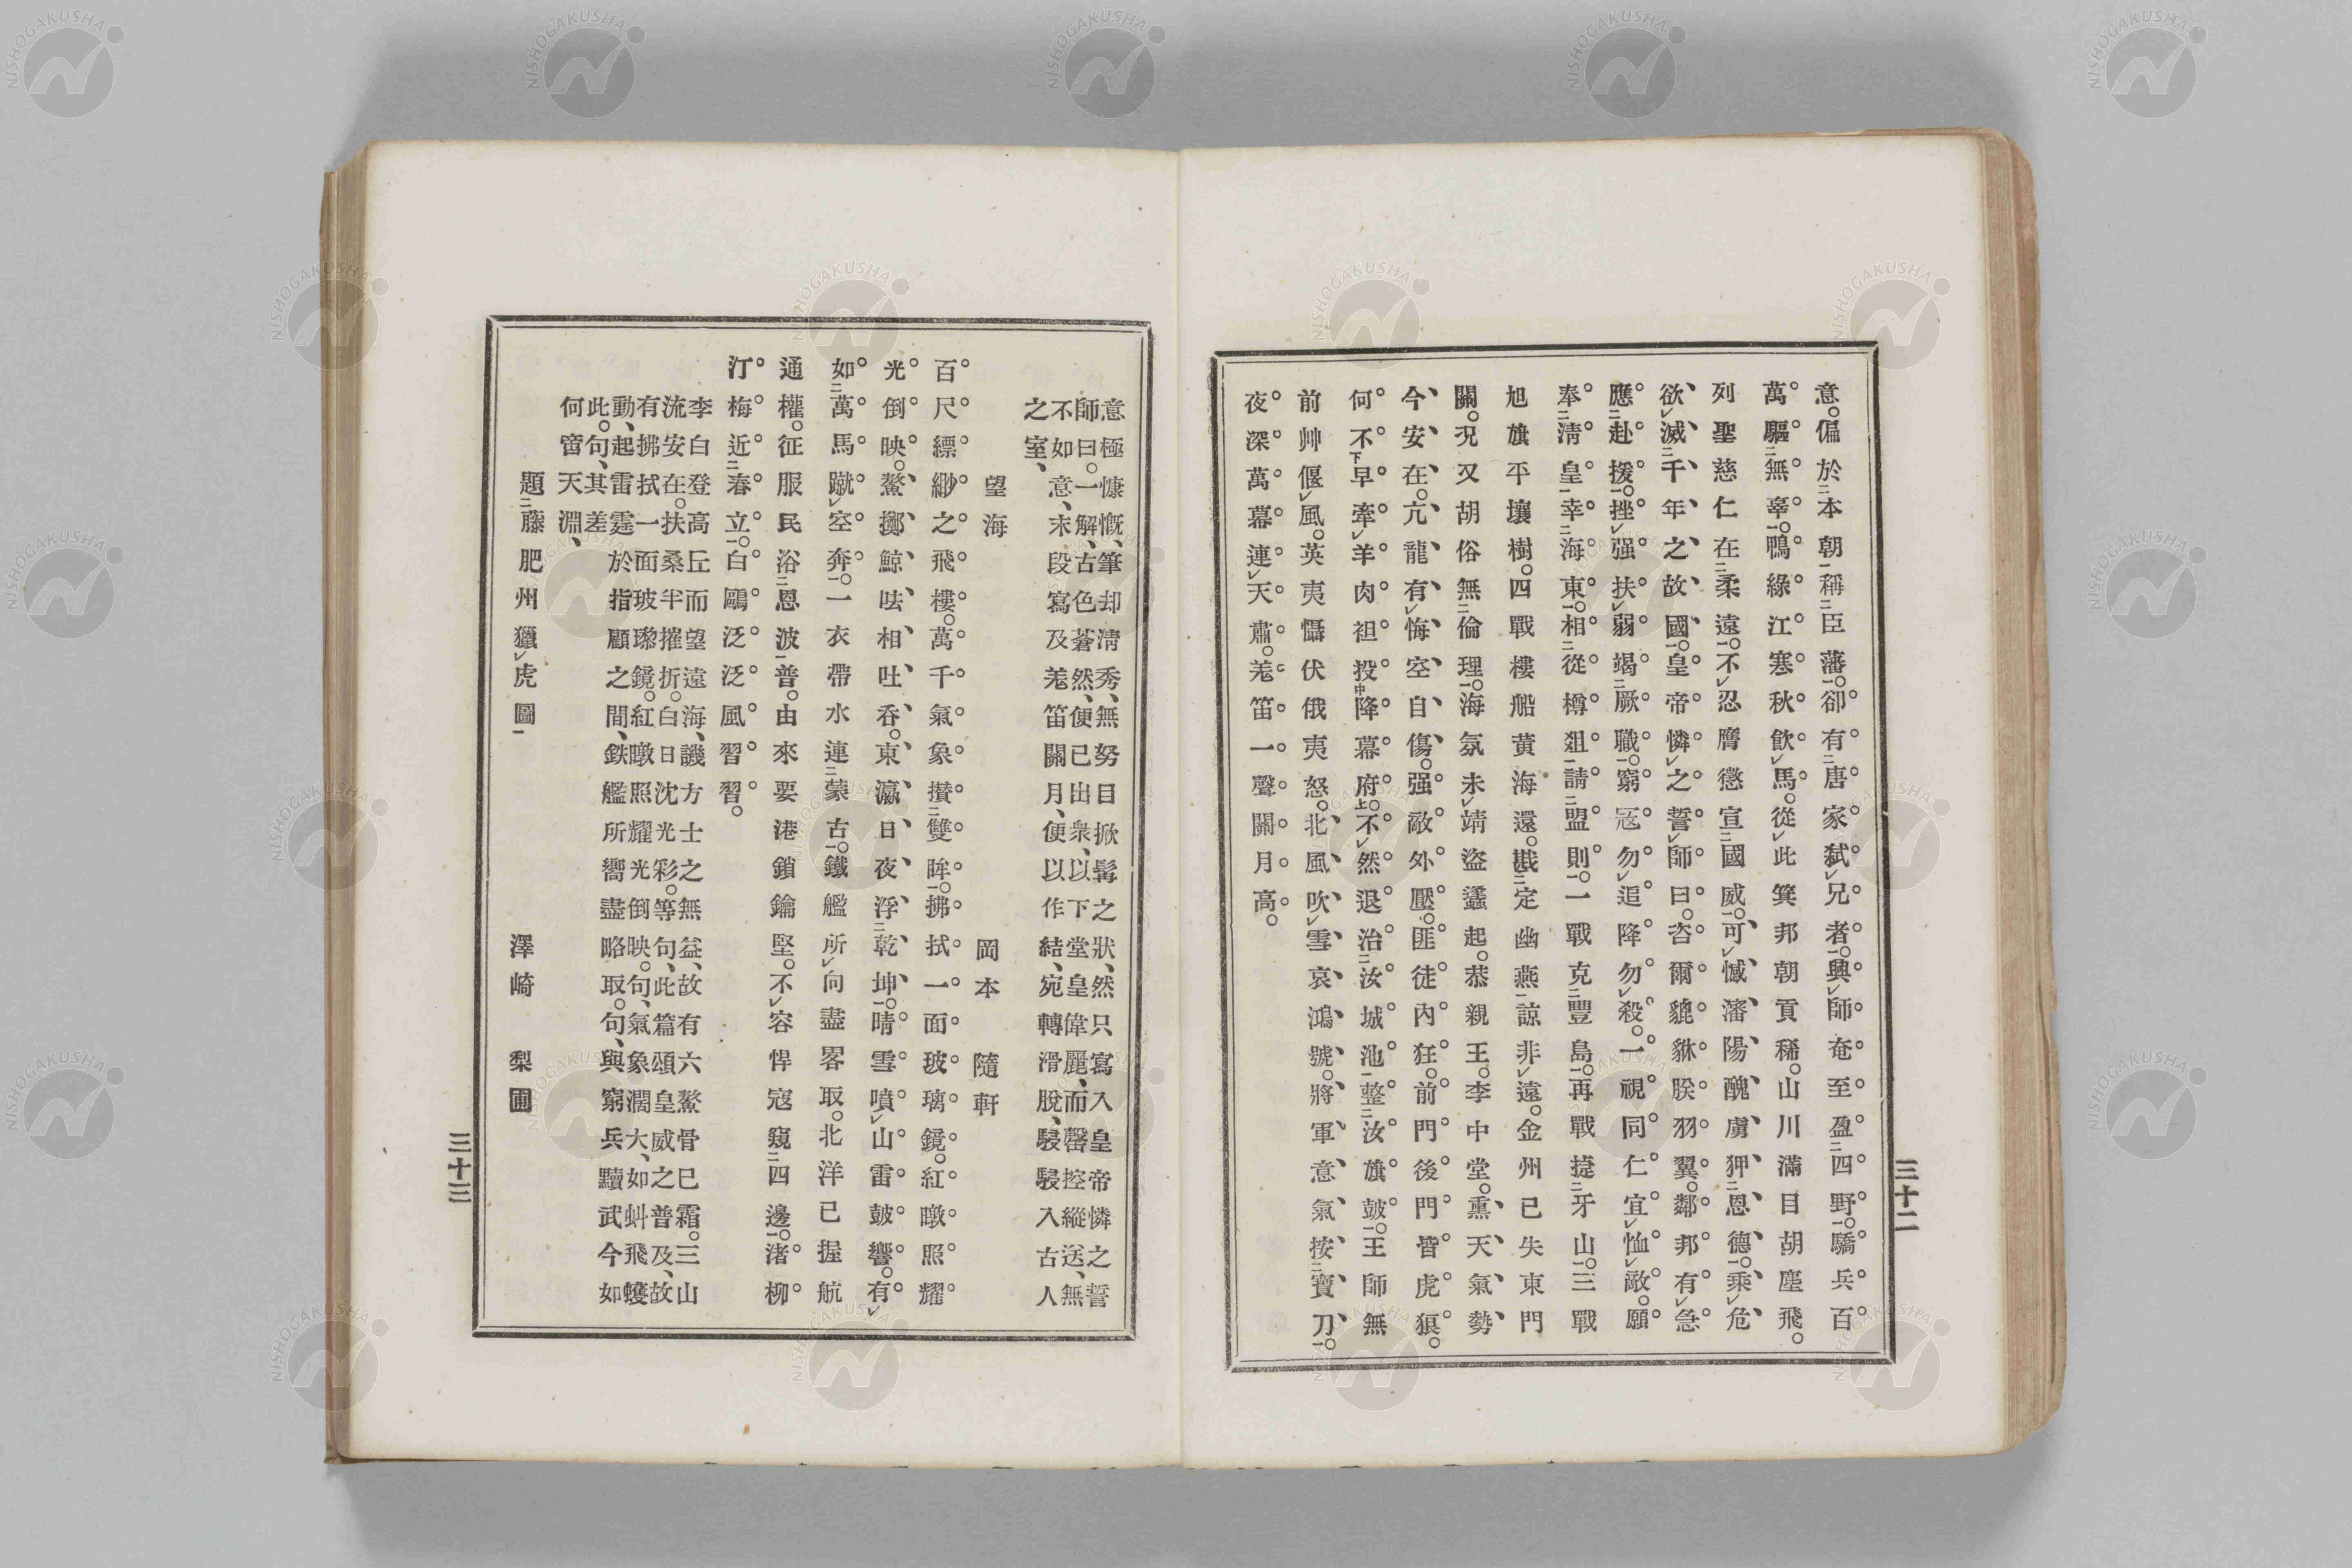 意。偏於本朝稱臣藩。卻有唐家弑兄者。興師奄至盈四野。驕兵百
萬驅無辜。鴨綠江寒秋飮馬。從此箕邦朝貢稀。山川滿目胡塵飛。
列聖慈仁在柔遠。不忍膺懲宣國威。可憾瀋陽醜虜狎恩德。乘危
欲滅千年之故國。皇帝憐之誓師曰。咨爾貔貅朕羽翼。鄰邦有急
應赴援。挫强扶弱竭厥職。窮寇勿追降勿殺。一視同仁宜恤敵。願
奉淸皇幸海東。相從樽俎請盟則。一戰克豐島。再戰捷牙山。三戰
旭旗平壤樹。四戰樓船黃海還。戡定幽燕諒非遠。金州已失東門
關。况又胡俗無倫理。海氛未靖盜蠭起。恭親王。李中堂。熏天氣勢
今安在。亢龍有悔空自傷。强敵外壓。匪徒內狂。前門後門皆虎狼。
何不早牽羊肉袒投降幕府。不然退治汝城池整汝旗鼓。王師無
前艸偃風。英夷懾伏俄夷怒。北風吹雪哀鴻號。將軍意氣按寶刀。
夜深萬幕連天肅。羌笛一聲關月高。
三十二
意極慷慨、筆却淸秀、無努目掀髯之狀、然只寫入皇帝憐之誓
師曰。一解、古色蒼然、便已出衆、以下堂皇偉麗、而罄控縱送、無
不如意、末段寫及羌笛關月、便以作結、宛轉滑脫、駸駸入古人
之室、
望海　岡本隨軒
百尺縹緲之飛樓。萬千氣象攅雙眸。拂拭一面玻璃鏡。紅暾照耀
光倒映。鰲擲鯨呿相吐呑。東瀛日夜浮乾坤。晴雪噴山雷鼓響。有
如萬馬蹴空奔。一衣帶水連蒙古。鐵艦所向盡畧取。北洋已握航
通權。征服民浴恩波普。由來要港鎖鑰堅。不容悍寇窺四邊。渚柳
汀梅近春立。白鷗泛泛風習習。
李白登高丘而望遠海、譏方士之無益、故有六鰲骨已霜。三山
流安在。扶桑半摧折。白日沈光彩。等句、此篇頌皇威之普及、故
有拂拭一面玻瓈鏡。紅暾照耀光倒映。句、氣象濶大、如蚪飛蠖
動、起雷霆於指顧之間、鉄艦所嚮盡略取。句、與窮兵黷武今如
此。句、其差
何啻天淵、
題藤肥州獵虎圖　澤崎梨圃
三十三